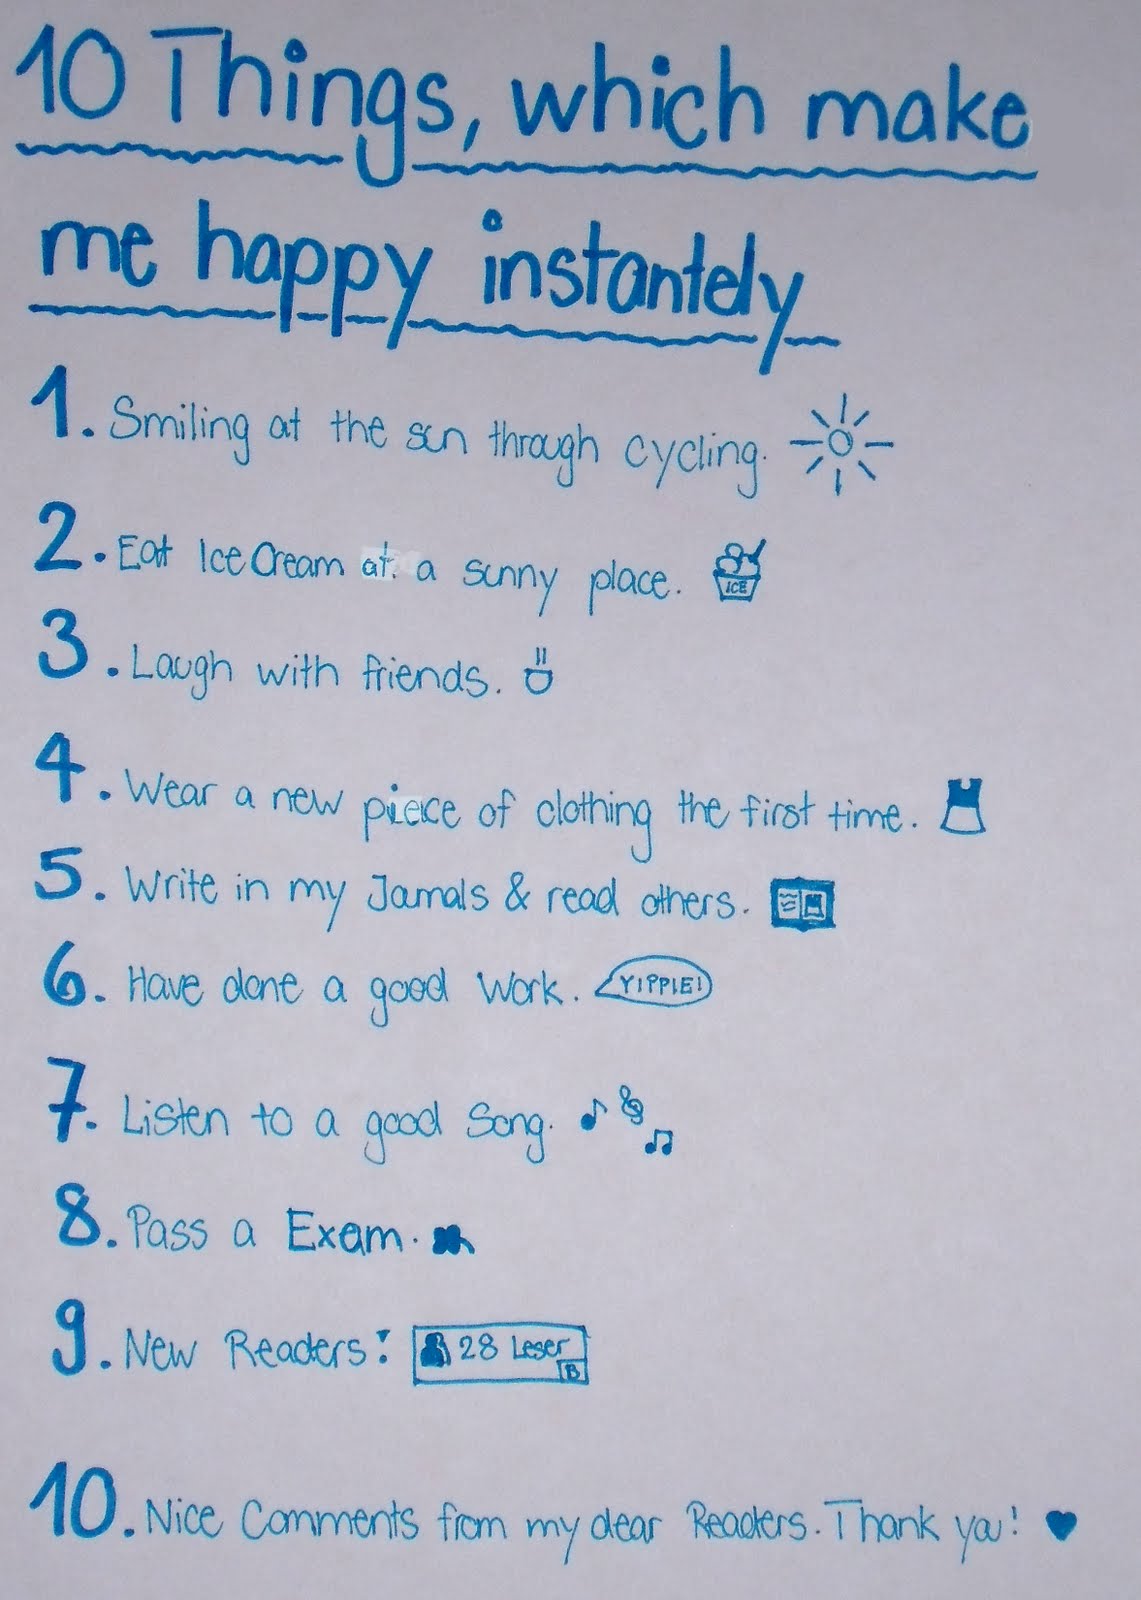 10 Things, which make
me happy instantely
1. Smiling at the sun through cycling.
2. Eat Ice Cream at a sunny place. ICE
3. Laugh with friends.
4. Wear a new pieice of clothing the first time.
5. Write in my Jornals & read others.
6. Have done a good Work. YIPPIE!
7. Listen to a good Song.
8. Pass a Exam.
9. New Readers! 28 Leser B
10. Nice Comments from my dear Readers. Thank you! ♥